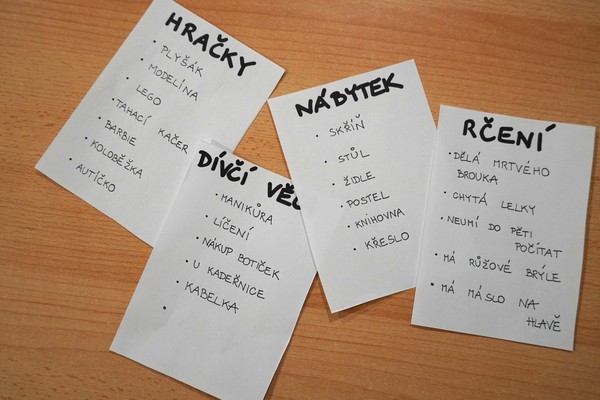 HRAČKY
• PLYŠÁK
• MODELÍNA
• LEGO
• TAHACÍ KAČER
• BARBIE
• KOLOBĚŽKA
• AUTÍČKO
DÍVČÍ VĚC
• MANIKÚRA
• LÍČENÍ
• NÁKUP BOTIČEK
• U KADEŘNICE
• KABELKA
•
NÁBYTEK
• SKŘÍŇ
• STŮL
• ŽIDLE
• POSTEL
• KNIHOVNA
• KŘESLO
RČENÍ
• DĚLÁ MRTVÉHO
BROUKA
• CHYTÁ LELKY
• NEUMÍ DO PĚTI
POČÍTAT
• MÁ RŮŽOVÉ BRÝLE
• MÁ MÁSLO NA
HLAVĚ